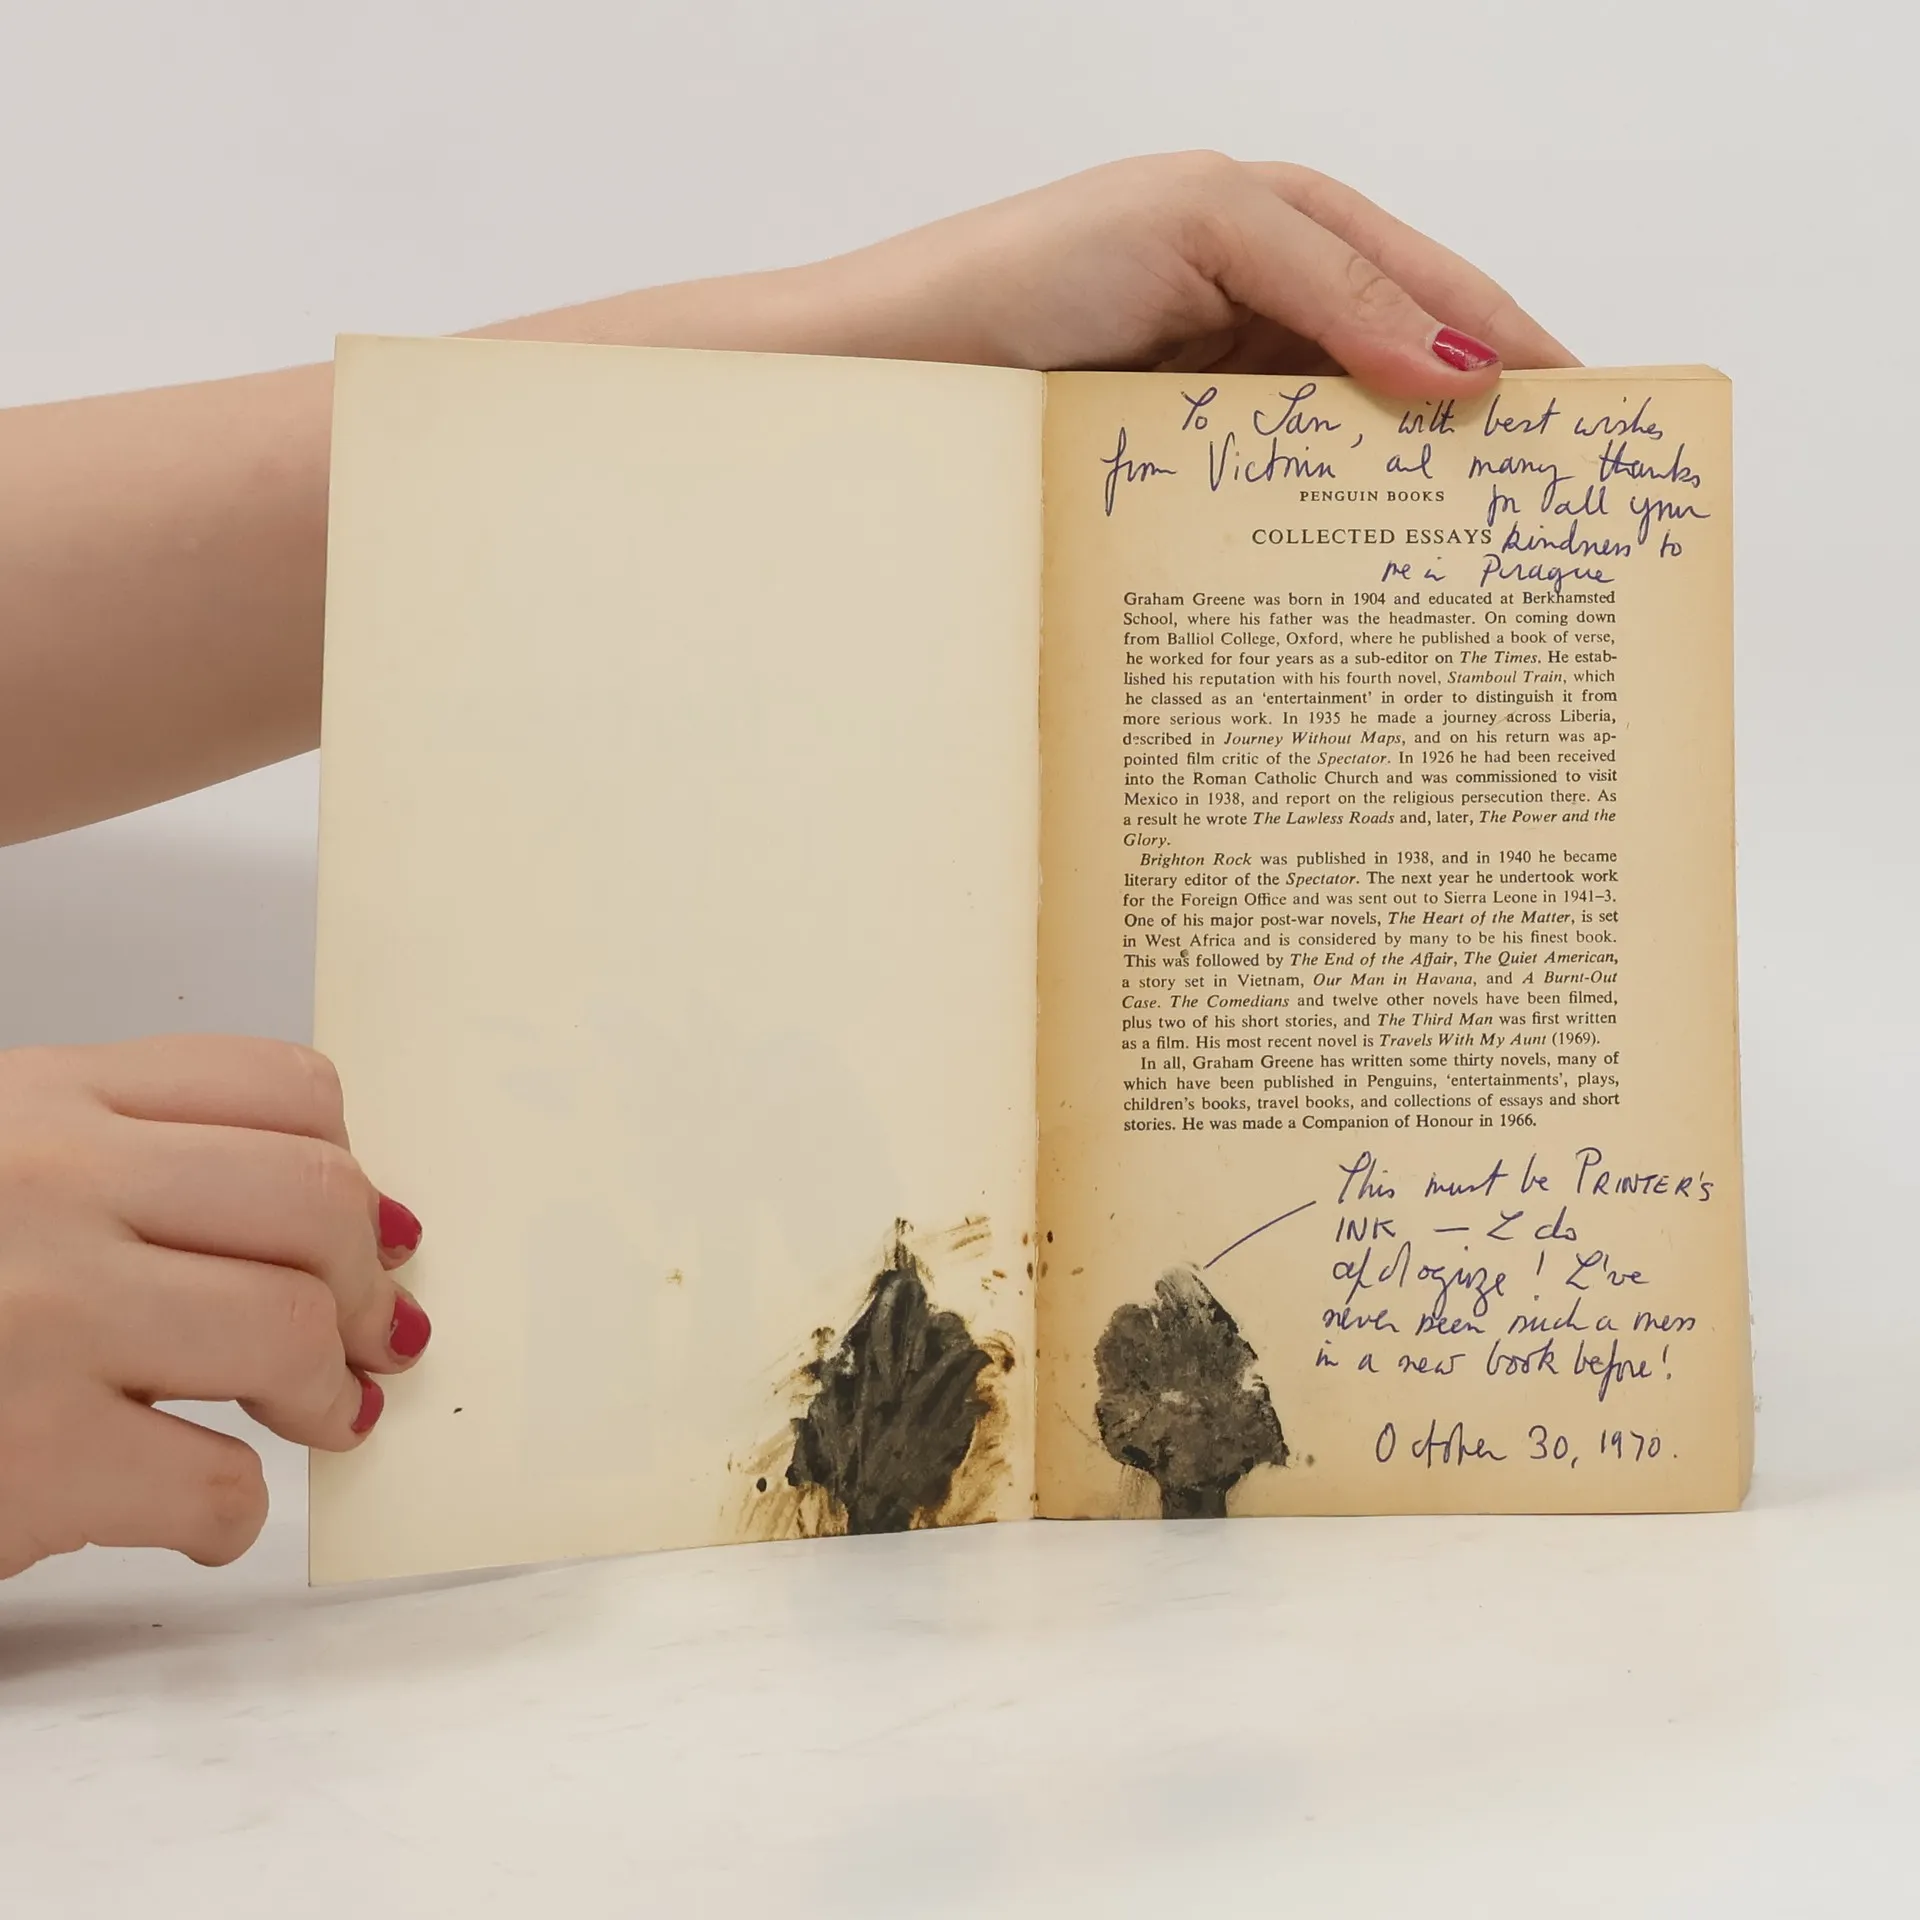 To Jan, with best wishes
from Victoria and many thanks
PENGUIN BOOKS
for all your
COLLECTED ESSAYS
kindness to
me in Prague
Graham Greene was born in 1904 and educated at Berkhamsted
School, where his father was the headmaster. On coming down
from Balliol College, Oxford, where he published a book of verse,
he worked for four years as a sub-editor on The Times. He estab-
lished his reputation with his fourth novel, Stamboul Train, which
he classed as an ‘entertainment’ in order to distinguish it from
more serious work. In 1935 he made a journey across Liberia,
described in Journey Without Maps, and on his return was ap-
pointed film critic of the Spectator. In 1926 he had been received
into the Roman Catholic Church and was commissioned to visit
Mexico in 1938, and report on the religious persecution there. As
a result he wrote The Lawless Roads and, later, The Power and the
Glory.
Brighton Rock was published in 1938, and in 1940 he became
literary editor of the Spectator. The next year he undertook work
for the Foreign Office and was sent out to Sierra Leone in 1941–3.
One of his major post-war novels, The Heart of the Matter, is set
in West Africa and is considered by many to be his finest book.
This was followed by The End of the Affair, The Quiet American,
a story set in Vietnam, Our Man in Havana, and A Burnt-Out
Case. The Comedians and twelve other novels have been filmed,
plus two of his short stories, and The Third Man was first written
as a film. His most recent novel is Travels With My Aunt (1969).
In all, Graham Greene has written some thirty novels, many of
which have been published in Penguins, ‘entertainments’, plays,
children’s books, travel books, and collections of essays and short
stories. He was made a Companion of Honour in 1966.
This must be PRINTER'S
INK — I do
apologize! I've
never seen such a mess
in a new book before!
October 30, 1970.